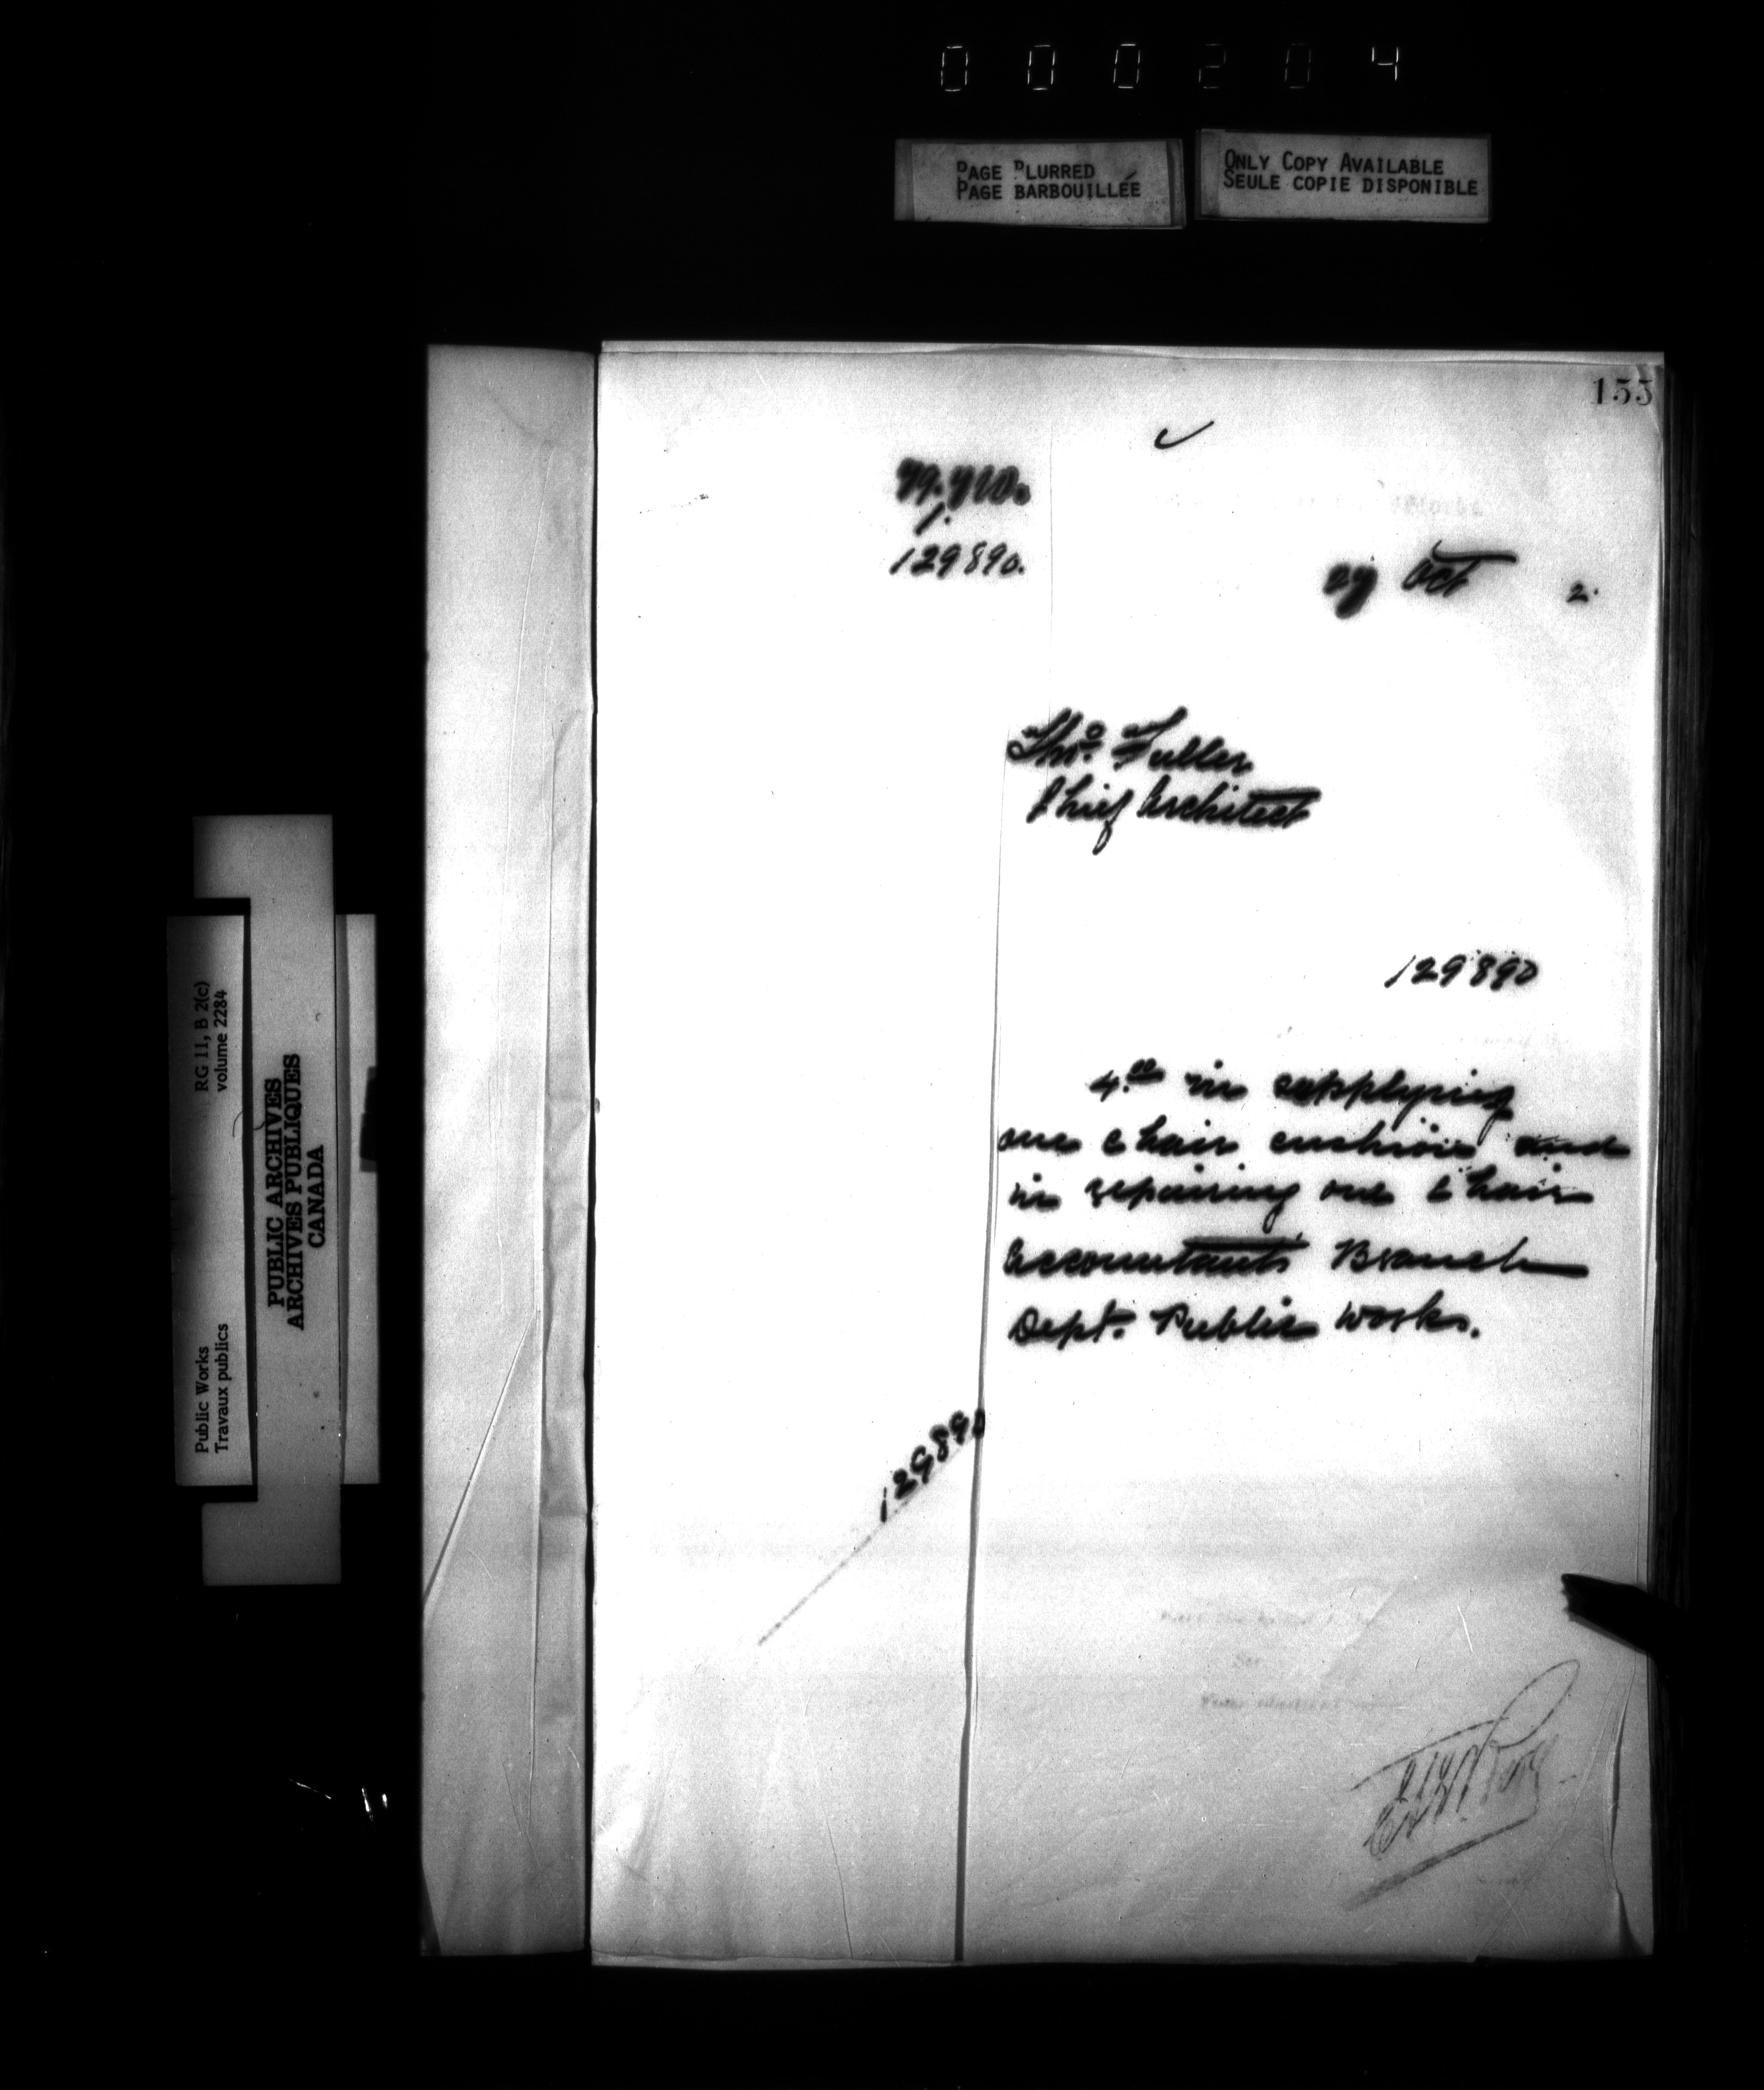 000204
PAGE BLURRED
PAGE BARBOUILLÉE
ONLY COPY AVAILABLE
SEULE COPIE DISPONIBLE
155
129890.
27 Oct 2.
Thos. Fuller
Chief Architect
129890
4.00 in supplying
one chair cushion and
in repairing one chair
Accountants Branch
Dept. Public Works.
129890
RG 11, B 2(c)
volume 2284
PUBLIC ARCHIVES
ARCHIVES PUBLIQUES
CANADA
Public Works
Travaux publics